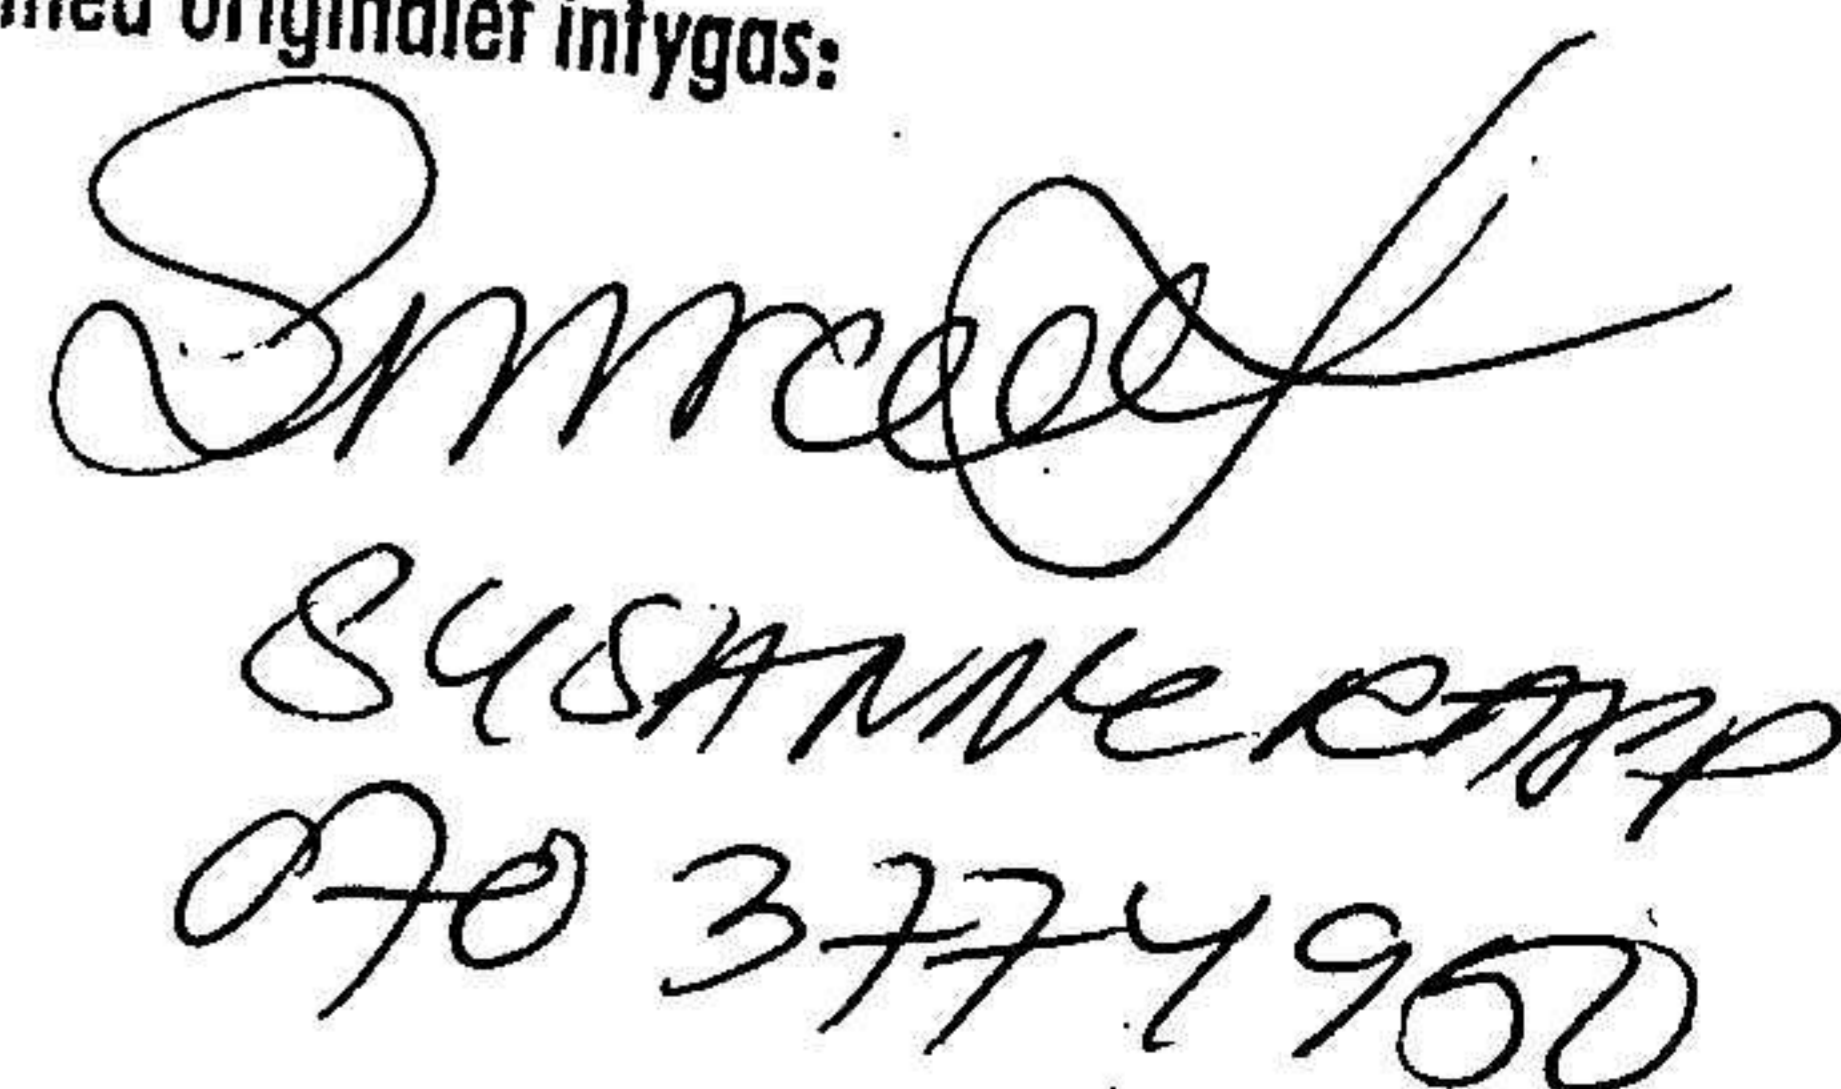 med originalet intygas:
SUSANNE CAMP
070 3774950